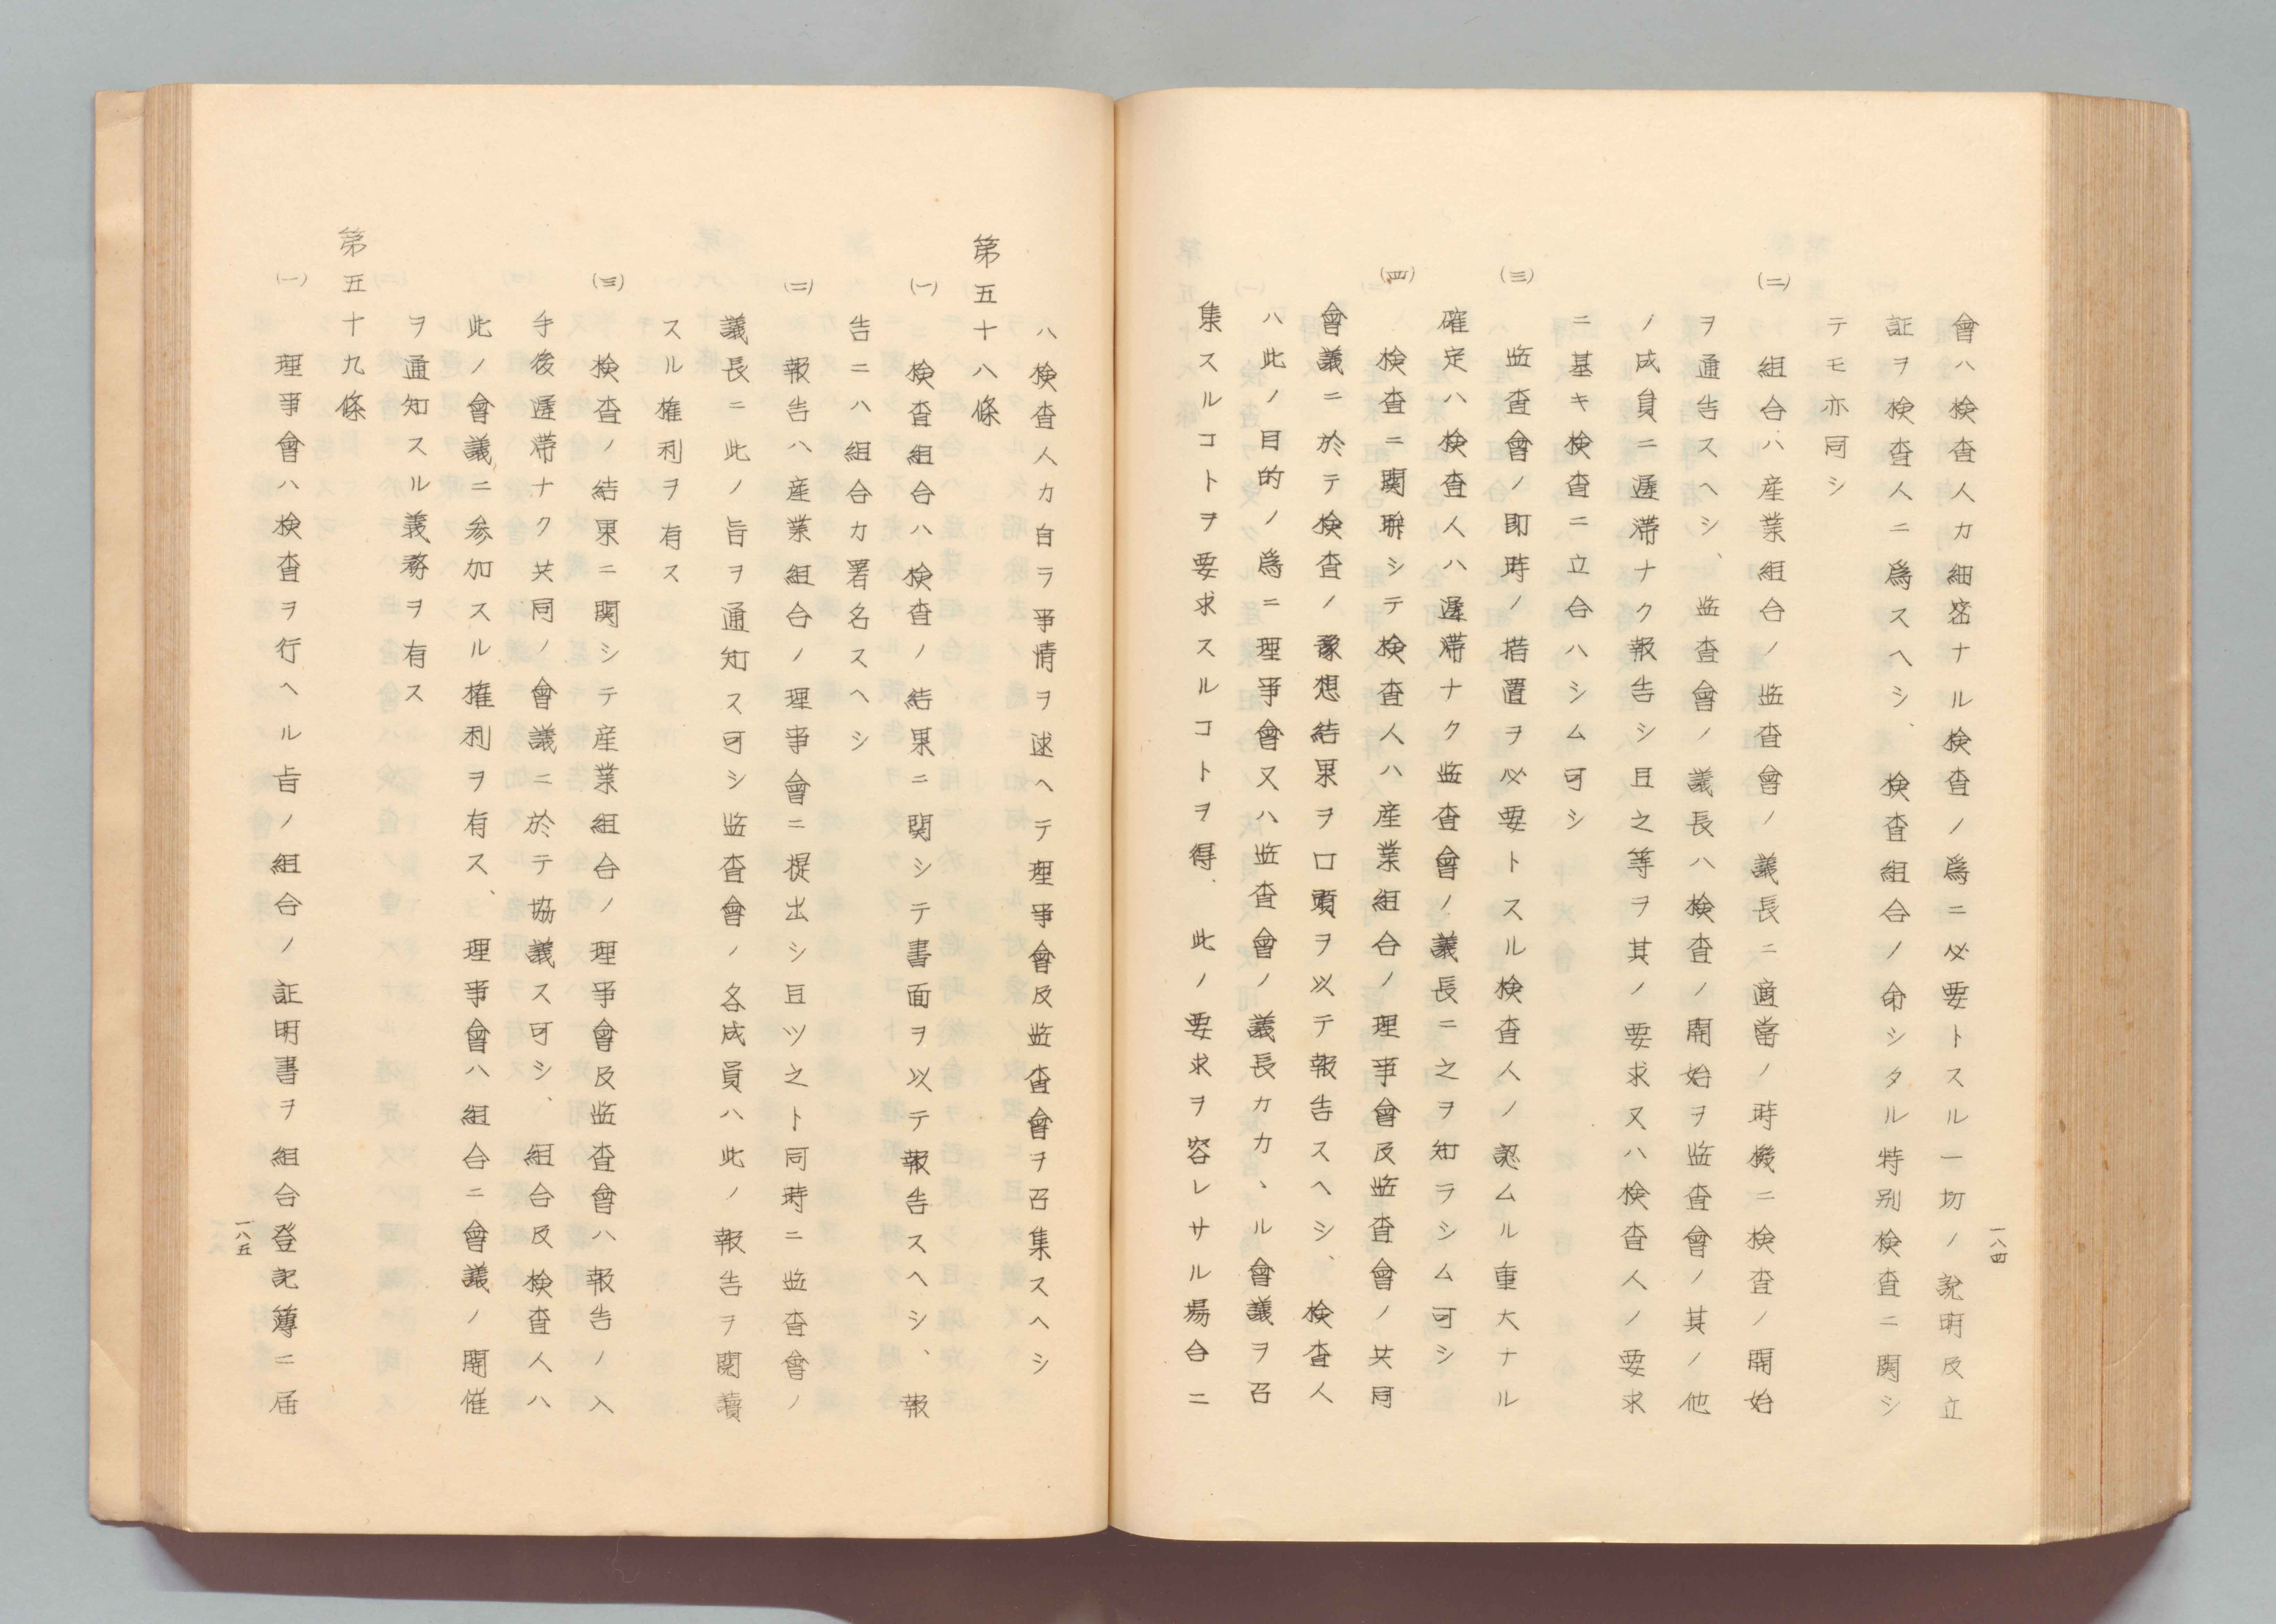 會ハ檢査人カ細密ナル檢査ノ爲ニ必要トスル一切ノ說明及立
証ヲ檢査人ニ爲スヘシ、檢査組合ノ命シタル特別檢査ニ関シ
テモ亦同シ
(二) 組合ハ産業組合ノ监査會ノ議長ニ適當ノ時機ニ檢査ノ開始
ヲ通告スヘシ、监査會ノ議長ハ檢査ノ開始ヲ监査會ノ其ノ他
ノ成員ニ遲滯ナク報告シ且之等ヲ其ノ要求又ハ檢査人ノ要求
ニ基キ檢査ニ立合ハシム可シ
(三) 监査會ノ即時ノ措置ヲ必要トスル檢査人ノ認ムル重大ナル
確定ハ檢査人ハ遲滯ナク监査會ノ議長ニ之ヲ知ラシム可シ
(四) 檢査ニ関聯シテ檢査人ハ産業組合ノ理事會及监査會ノ共同
會議ニ於テ檢査ノ豫想結果ヲ口頭ヲ以テ報告スヘシ、檢査人
ハ此ノ目的ノ爲ニ理事會又ハ监査會ノ議長カカヽル會議ヲ召
集スルコトヲ要求スルコトヲ得、此ノ要求ヲ容レサル場合ニ
一八四
ハ檢査人カ自ラ事情ヲ述ヘテ理事會及监査會ヲ召集スヘシ
第五十八條
(一) 檢査組合ハ檢査ノ結果ニ関シテ書面ヲ以テ報告スヘシ、報
告ニハ組合カ署名スヘシ
(二) 報告ハ産業組合ノ理事會ニ提出シ且ツ之ト同時ニ监査會ノ
議長ニ此ノ旨ヲ通知ス可シ监査會ノ各成員ハ此ノ報告ヲ閲讀
スル権利ヲ有ス
(三) 檢査ノ結果ニ関シテ産業組合ノ理事會及监査會ハ報告ノ入
手後遲滯ナク共同ノ會議ニ於テ協議ス可シ、組合及檢査人ハ
此ノ會議ニ参加スル権利ヲ有ス、理事會ハ組合ニ會議ノ開催
ヲ通知スル義務ヲ有ス
第五十九條
(一) 理事會ハ檢査ヲ行ヘル旨ノ組合ノ証明書ヲ組合登記簿ニ届
一八五